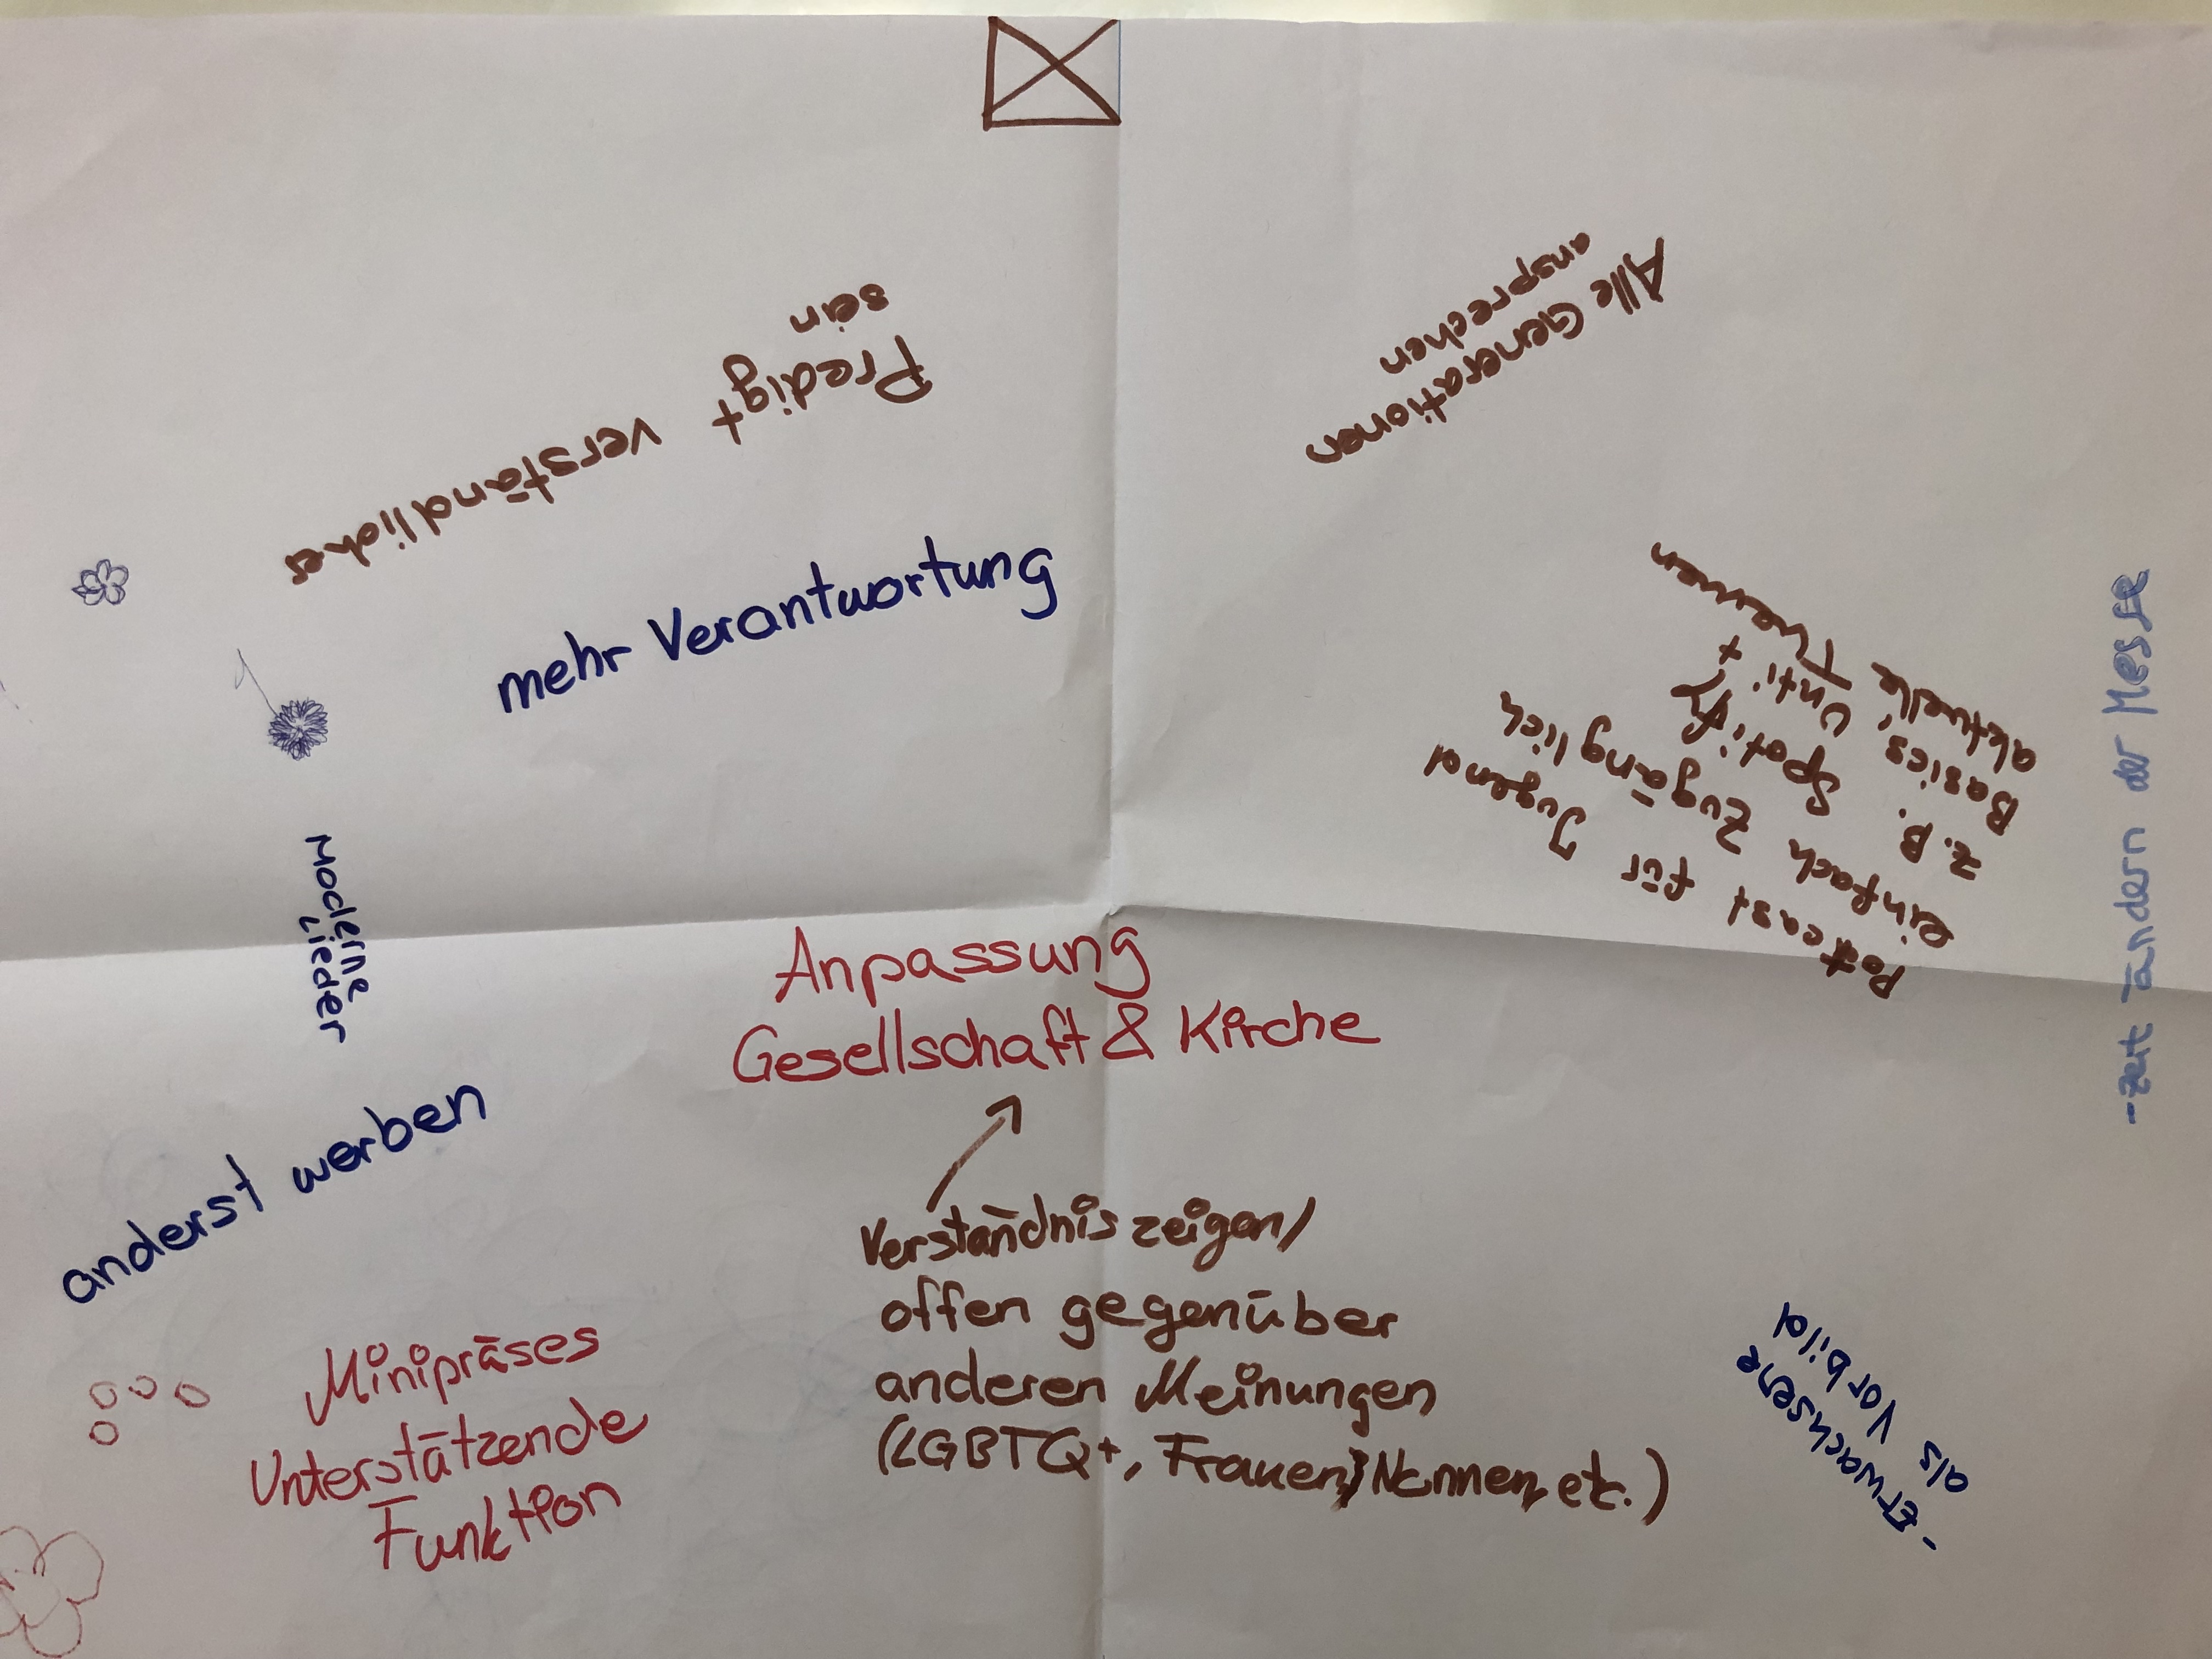 Predigt verständlicher
sein
Alle Generationen
ansprechen
mehr Verantwortung
Potcast für Jugend
einfach zugänglich
z.B. Spotify
Basics, Unti +
aktuelle Themen
-zeit ändern der Messe
Moderne
Lieder
Anpassung
Gesellschaft & Kirche
anderst werben
Verständnis zeigen/
offen gegenüber
anderen Meinungen
(LGBTQ+, Frauen, Nonnen, etc.)
Minipräses
Unterstützende
Funktion
-Erwachsene
als Vorbild